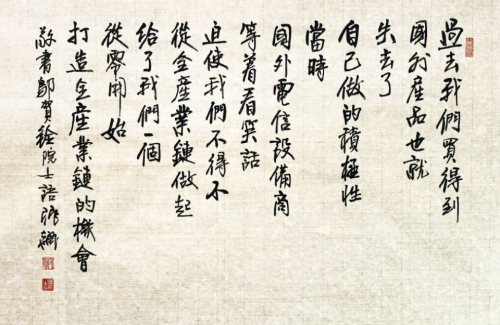 過去我們買得到
國外產品也就
失去了
自己做的積極性
當時
國外電信設備商
等着看笑話
迫使我們不得不
從全產業鏈做起
給了我們一個
從零開始
打造全產業鏈的機會
敬書鄔賀銓院士語